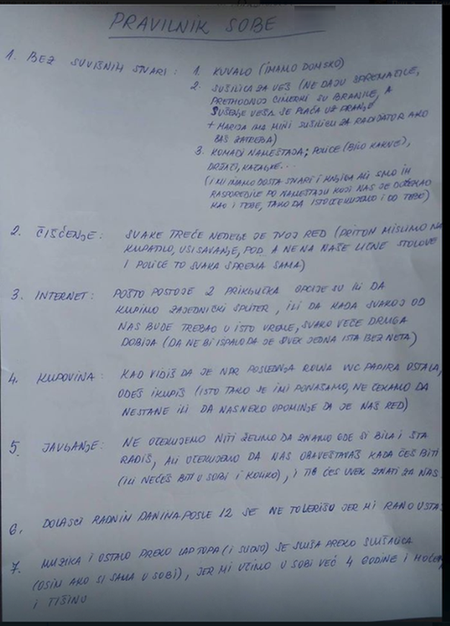 PRAVILNIK SOBE
1. BEZ SUVIŠNIH STVARI: 1. KUVALO (IMAMO DOMSKO)
2. SUŠILICA ZA VEŠ (NE DAJU SPREMAČICE,
PRETHODNOJ CIMERKI SU BRANILE, A
SUŠENJE VEŠA SE PLAĆA UZ PRANJE
+ MARIJA IMA MINI SUŠILICU ZA RADIJATOR AKO
BAŠ ZATREBA)
3. KOMADI NAMEŠTAJA; POLICE (BILO KAKVE),
DRŽAČI, KAZALJKE...
(I MI IMAMO DOSTA STVARI I KNJIGA ALI SMO IH
RASPOREDILE PO NAMEŠTAJU KOJI NAS JE DOČEKAO
KAO I TEBE, TAKO DA ISTO OČEKUJEMO I OD TEBE)
2. ČIŠĆENJE: SVAKE TREĆE NEDELJE JE TVOJ RED (PRITOM MISLIMO NA
KUPATILO, USISAVANJE, POD, A NE NA NAŠE LIČNE STOLOVE
I POLICE TO SVAKA SPREMA SAMA)
3. INTERNET: POŠTO POSTOJE 2 PRIKLJUČKA OPCIJE SU ILI DA
KUPIMO ZAJEDNIČKI SPLITER, ILI DA KADA SVAKOJ OD
NAS BUDE TREBAO U ISTO VREME, SVAKO VEČE DRUGA
DOBIJA (DA NE BI ISPALO DA JE UVEK JEDNA ISTA BEZ NETA)
4. KUPOVINA: KAO VIDIŠ DA JE NPR POSLEDNJA ROLNA WC PAPIRA OSTALA,
ODEŠ I KUPIŠ (ISTO TAKO SE I MI PONAŠAMO, NE ČEKAMO DA
NESTANE ILI DA NAS NEKO OPOMINJE DA JE NAŠ RED)
5. JAVLJANJE: NE OČEKUJEMO NITI ŽELIMO DA ZNAMO GDE SI BILA I ŠTA
RADIŠ, ALI OČEKUJEMO DA NAS OBAVEŠTAVAŠ KADA ĆEŠ BITI
(ILI NEĆEŠ BITI U SOBI I KOLIKO), I TI ĆEŠ UVEK ZNATI ZA NAS
6. DOLASCI RADNIM DANIMA POSLE 12 SE NE TOLERIŠU JER MI RANO USTA
7. MUZIKA I OSTALO PREKO LAPTOPA (I SLIČNO) SE SLUŠA PREKO SLUŠALICA
(OSIM AKO SI SAMA U SOBI), JER MI UČIMO U SOBI VEĆ 4 GODINE I HOĆEMO
I TIŠINU